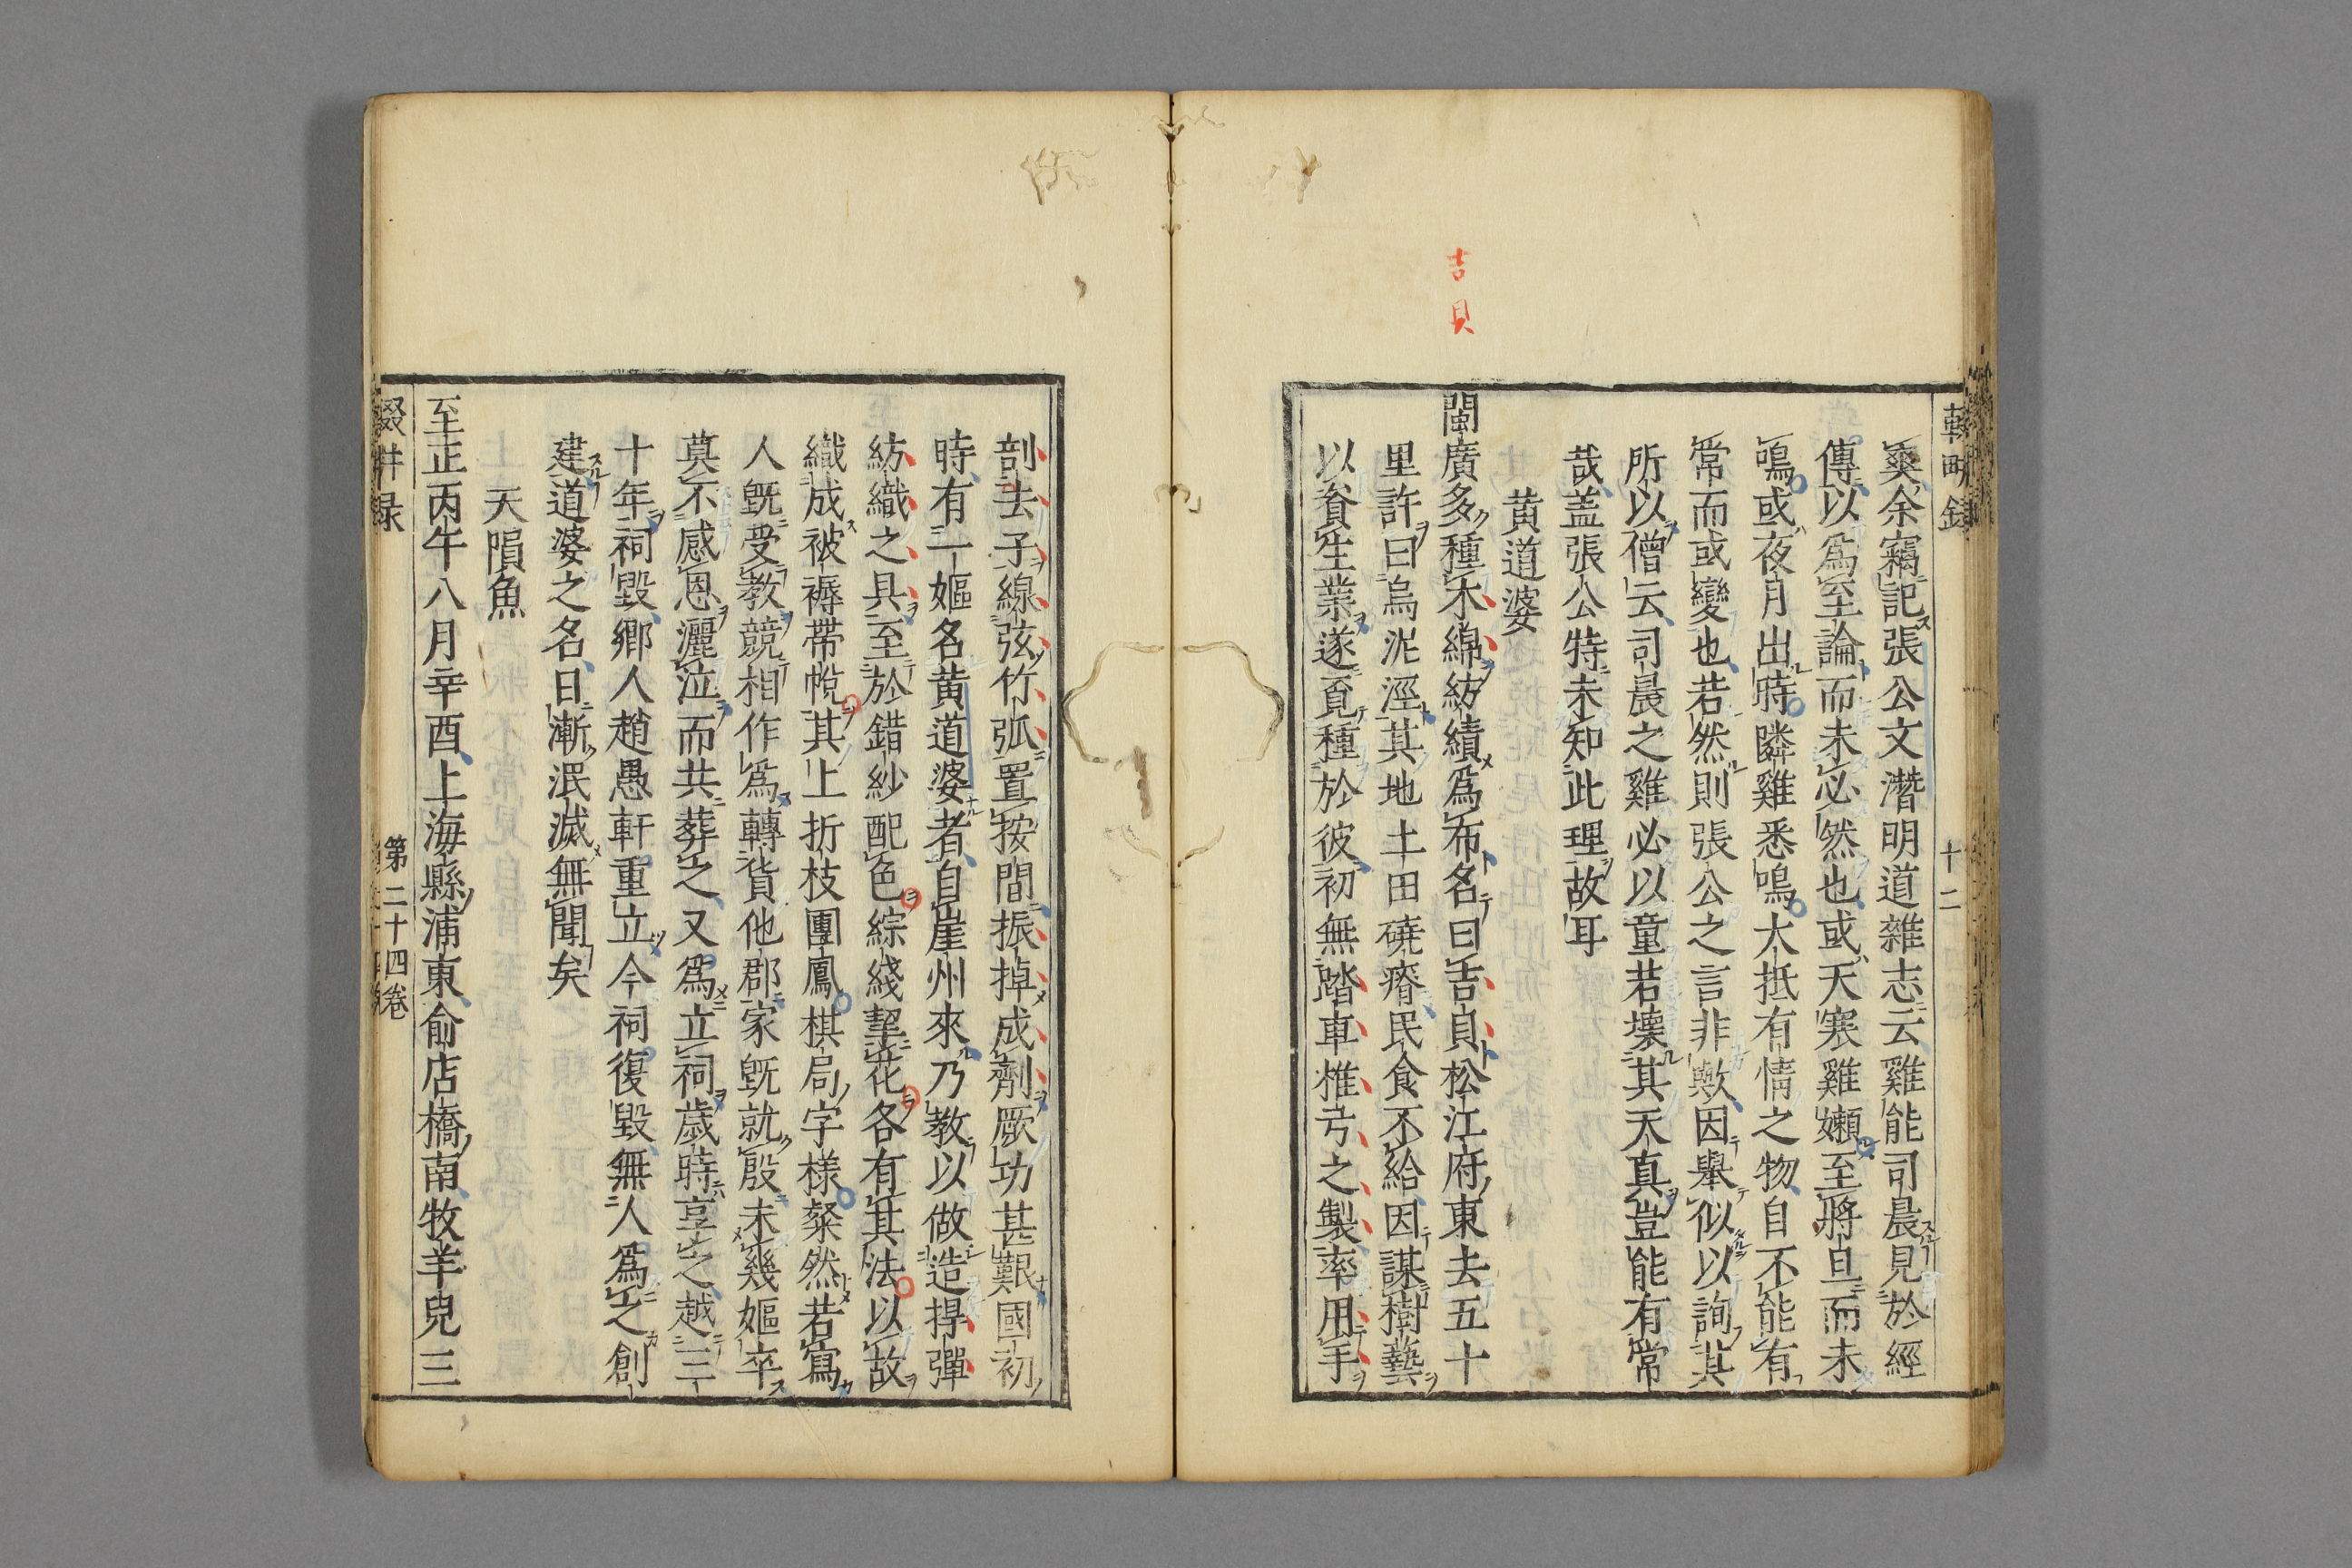 吉貝
輟耕録
十二
爽余竊記張公文潛明道雜志云雞能司晨見於經
傳以爲至論而未必然也或天寒雞嬾至將旦而未
鳴或夜月出時隣雞悉鳴大抵有情之物自不能有
常而或變也若然則張公之言非歟因舉似以詢其
所以僧云司晨之雞必以童若壊其天真豈能有常
哉盖張公特未知此理故耳
黄道婆
閩廣多種木綿紡績爲布名曰吉貝松江府東去五十
里許曰烏泥涇其地土田磽瘠民食不給因謀樹藝
以資生業遂覓種於彼初無踏車椎弓之製率用手
剖去子線弦竹弧置按間振掉成劑厥功甚艱國初
時有一嫗名黄道婆者自崖州來乃教以做造捍彈
紡織之具至於錯紗配色綜綫挈花各有其法以故
織成被褥帯帨其上折枝團鳳棋局字様粲然若寫
人既受教競相作爲轉貨他郡家既就殷未幾嫗卒
莫不感恩灑泣而共葬之又爲立祠歳時享之越三
十年祠毀鄉人趙愚軒重立今祠復毀無人爲之創
建道婆之名日漸泯滅無聞矣
天隕魚
至正丙午八月辛酉上海縣浦東俞店橋南牧羊兒三
輟耕録
第二十四卷